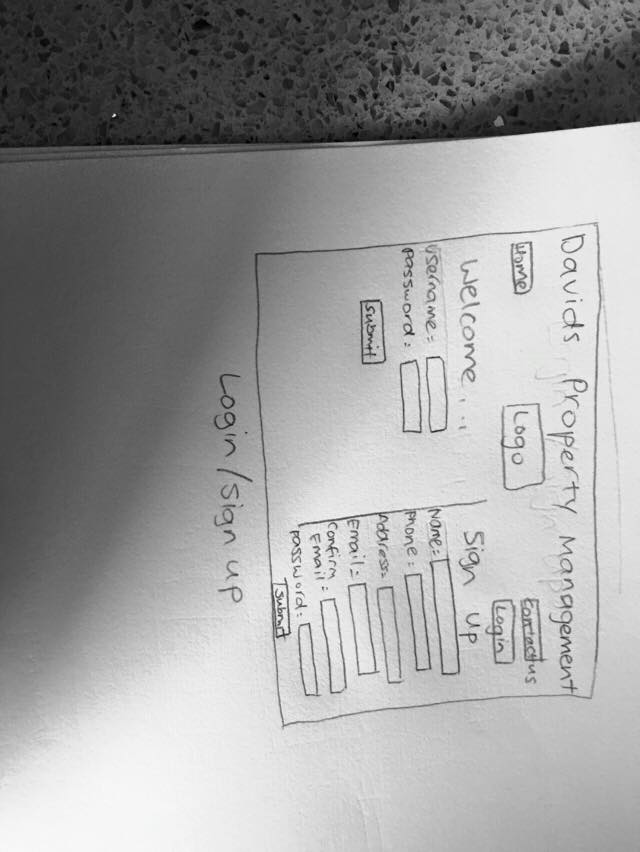 Davids Property Management
Home
Logo
Contact us
Login
Welcome...
Username:
Password:
Submit
Sign Up
Name:
Phone:
Address:
Email:
Confirm
Email:
Password:
Submit
Login/Sign up